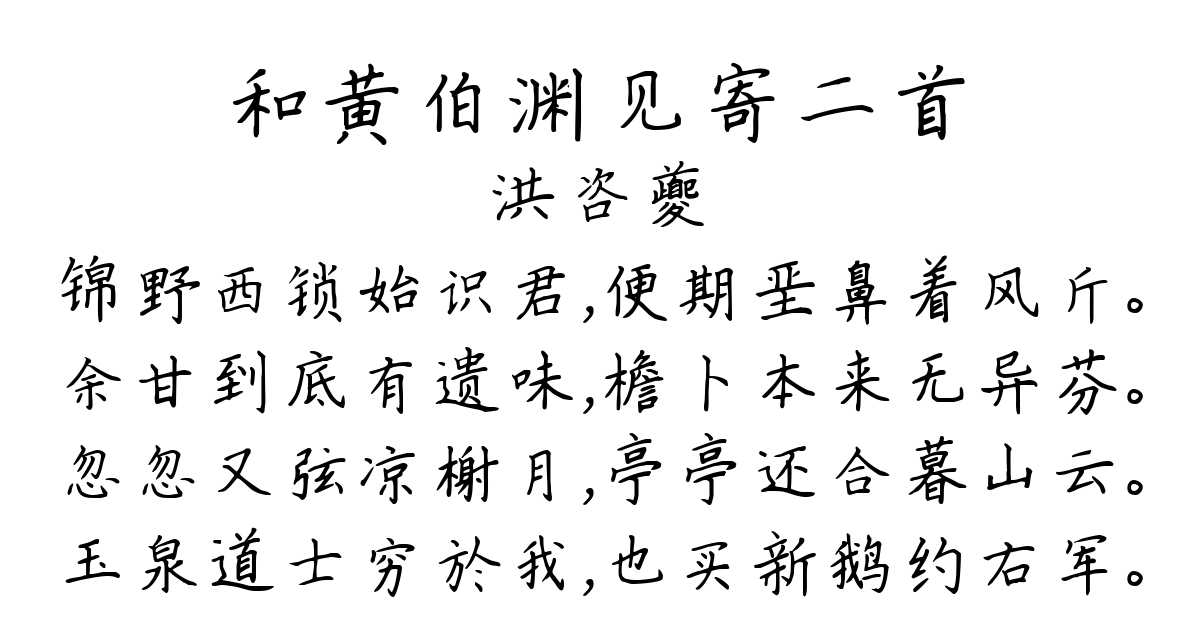 和黄伯渊见寄二首
洪咨夔
锦野西锁始识君,便期垩鼻着风斤。
余甘到底有遗味,檐卜本来无异芬。
忽忽又弦凉榭月,亭亭还合暮山云。
玉泉道士穷於我,也买新鹅约右军。